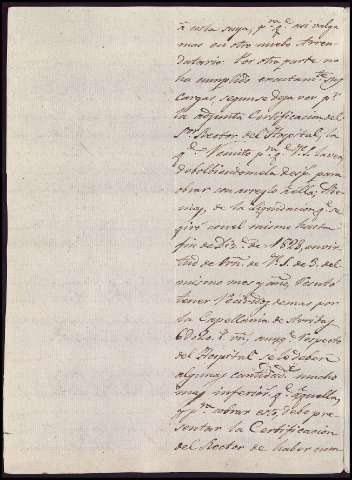 á esta suya, p.ª q.e asi valga
mas en otro nuebo Arren-
datario. Por otra parte no
ha cumplido exactam.te sus
cargas segun se deja ver p.r
la adjunta Certificacion del
S.or Rector del Hospital, la
q.e remito p.ª q.e V.S. la vea,
debolbiendomela desp.s para
obrar con arreglo á ella; Ade-
mas, de la liquidacion q.e se
giró con el mismo hasta
fin de Dic.e de 1828, en vir-
tud de orn. de V.S. de 3. del
mismo mes y año, resultó
tener recibidos demas por
la Capellania de
r.s v.n, mas respecto
del Hospital se le deben
algunas cantidad.s mucho
mas inferior.s q.e aquella,
y p.ª cobrar esta, debe pre-
sentar la Certificacion
del Rector de haber